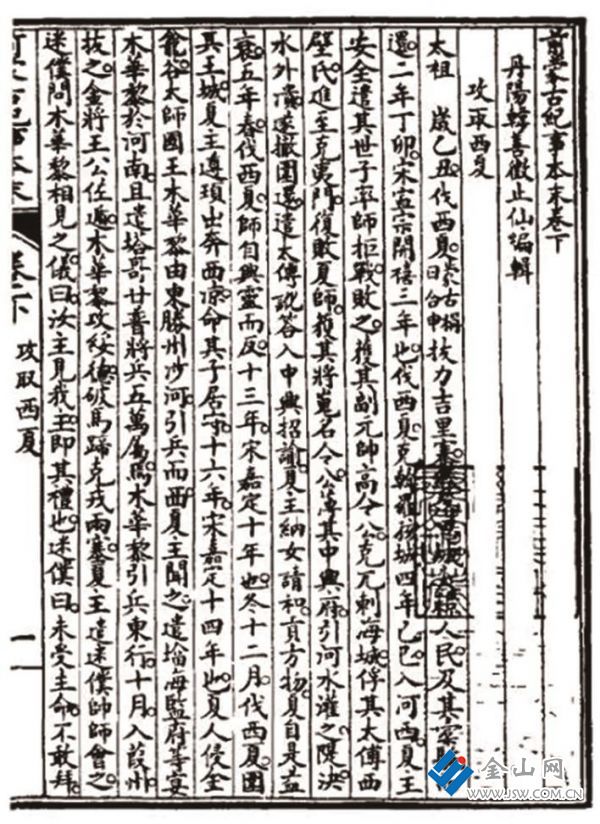 前蒙古紀事本末卷下
丹陽韓善徵止仙編輯
攻取西夏
太祖 歲乙丑伐西夏蒙古稱曰合申拔力吉里寨人民及其橐
還二年丁卯宋寧宗開禧三年也伐西夏克斡羅孩城四年己巳入河西夏主
安全遣其世子率師拒戰敗之獲其副元帥高令公克兀剌海城俘其太傅西
壁氏進至克夷門復敗夏師獲其將嵬名令公薄其中興府引河水灌之隄決
水外潰遂撤圍還遣太傅訛答入中興招諭夏主納女請和貢方物夏自是益
衰五年春伐西夏師自興靈而反十三年宋嘉定十年也冬十二月伐西夏圍
其王城夏主遵頊出奔西凉命其子居守十六年宋嘉定十四年也夏人侵金
龕谷太師國王木華黎由東勝州涉河引兵而西夏主聞之遣塔海監府等宴
木華黎於河南且遣塔哥甘普將兵五萬屬焉木華黎引兵東行十月入葭州
拔之金將王公佐遁木華黎攻綏德破馬蹄克戎兩寨夏主遣迷僕帥師會之
迷僕問木華黎相見之儀曰汝主見我主即其禮也迷僕曰未受主命不敢拜
前蒙古紀事本末 卷下 攻取西夏 一
金山网
WWW.JSW.COM.CN